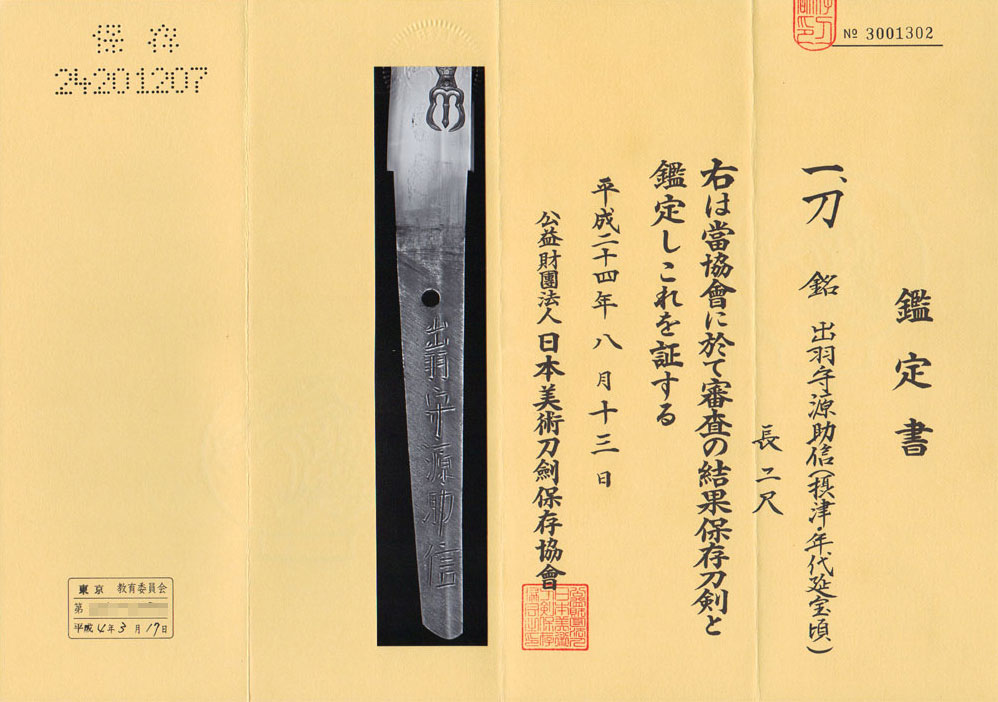 鑑定書
№ 3001302
一、刀 銘 出羽守源助信(摂津・年代延宝頃)
長二尺
右は當協會に於て審査の結果保存刀剣と
鑑定しこれを証する
平成二十四年八月十三日
公益財團法人日本美術刀劍保存協會
出羽守源助信
保存
24201207
東京 教育委員会
第
平成4年3月17日